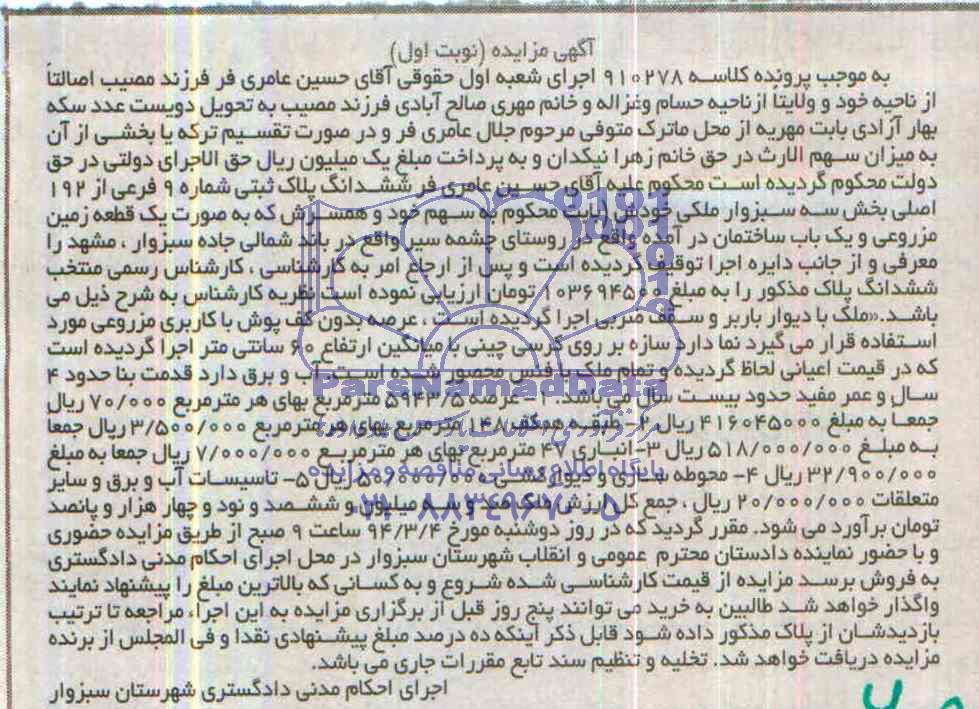 آگهی مزایده (نوبت اول)
به موجب پرونده کلاسه ۹۱۰۲۷۸ اجرای شعبه اول حقوقی آقای حسین عامری فر فرزند مصیب اصالتاً
از ناحیه خود و ولایتاً ازناحیه حسام وغزاله و خانم مهری صالح آبادی فرزند مصیب به تحویل دویست عدد سکه
بهار آزادی بابت مهریه از محل ماترک متوفی مرحوم جلال عامری فر و در صورت تقسیم ترکه یا بخشی از آن
به میزان سهم الارث در حق خانم زهرا نیکدان و به پرداخت مبلغ یک میلیون ریال حق الاجرای دولتی در حق
دولت محکوم گردیده است محکوم علیه آقای حسین عامری فر ششدانگ پلاک ثبتی شماره ۹ فرعی از ۱۹۲
اصلی بخش سه سبزوار ملکی خودش (بابت محکوم به سهم خود و همسرش که به صورت یک قطعه زمین
مزروعی و یک باب ساختمان در آمده واقع در روستای چشمه سیر واقع در باند شمالی جاده سبزوار ، مشهد را
معرفی و از جانب دایره اجرا توقیف گردیده است و پس از ارجاع امر به کارشناسی ، کارشناس رسمی منتخب
ششدانگ پلاک مذکور را به مبلغ ۱۰۳۶۹۴۵۰۰ تومان ارزیابی نموده است نظریه کارشناس به شرح ذیل می
باشد.«ملک با دیوار باربر و سقف ضربی اجرا گردیده است ، عرصه بدون کف پوش با کاربری مزروعی مورد
استفاده قرار می گیرد نما دارد سازه بر روی کرسی چینی با میانگین ارتفاع ۶۰ سانتی متر اجرا گردیده است
که در قیمت اعیانی لحاظ گردیده و تمام ملک با فنس محصور شده است. آب و برق دارد قدمت بنا حدود ۴
سال و عمر مفید حدود بیست سال می باشد. ۱- عرصه ۵۹۴۳/۵ مترمربع بهای هر مترمربع ۷۰/۰۰۰ ریال
جمعا به مبلغ ۴۱۶۰۴۵۰۰۰ ریال ۲- طبقه همکف ۱۴۸ مترمربع بهای هر مترمربع ۳/۵۰۰/۰۰۰ ریال جمعا
به مبلغ ۵۱۸/۰۰۰/۰۰۰ ریال ۳- انباری ۴۷ مترمربع بهای هر مترمربع ۷/۰۰۰/۰۰۰ ریال جمعا به مبلغ
۳۲/۹۰۰/۰۰۰ ریال ۴- محوطه سازی و دیوارکشی ۵۰/۰۰۰/۰۰۰ ریال ۵- تاسیسات آب و برق و سایر
متعلقات ۲۰/۰۰۰/۰۰۰ ریال ، جمع کل ارزش ملک صد و سه میلیون و ششصد و نود و چهار هزار و پانصد
تومان برآورد می شود. مقرر گردید که در روز دوشنبه مورخ ۹۴/۳/۴ ساعت ۹ صبح از طریق مزایده حضوری
و با حضور نماینده دادستان محترم عمومی و انقلاب شهرستان سبزوار در محل اجرای احکام مدنی دادگستری
به فروش برسد مزایده از قیمت کارشناسی شده شروع و به کسانی که بالاترین مبلغ را پیشنهاد نمایند
واگذار خواهد شد طالبین به خرید می توانند پنج روز قبل از برگزاری مزایده به این اجراء مراجعه تا ترتیب
بازدیدشان از پلاک مذکور داده شود قابل ذکر آینکه ده درصد مبلغ پیشنهادی نقدا و فی المجلس از برنده
مزایده دریافت خواهد شد. تخلیه و تنظیم سند تابع مقررات جاری می باشد.
اجرای احکام مدنی دادگستری شهرستان سبزوار
ParsNamadData
پایگاه اطلاع رسانی مناقصه و مزایده
۰۲۱-۸۸۳۴۹۶۷۰-۵